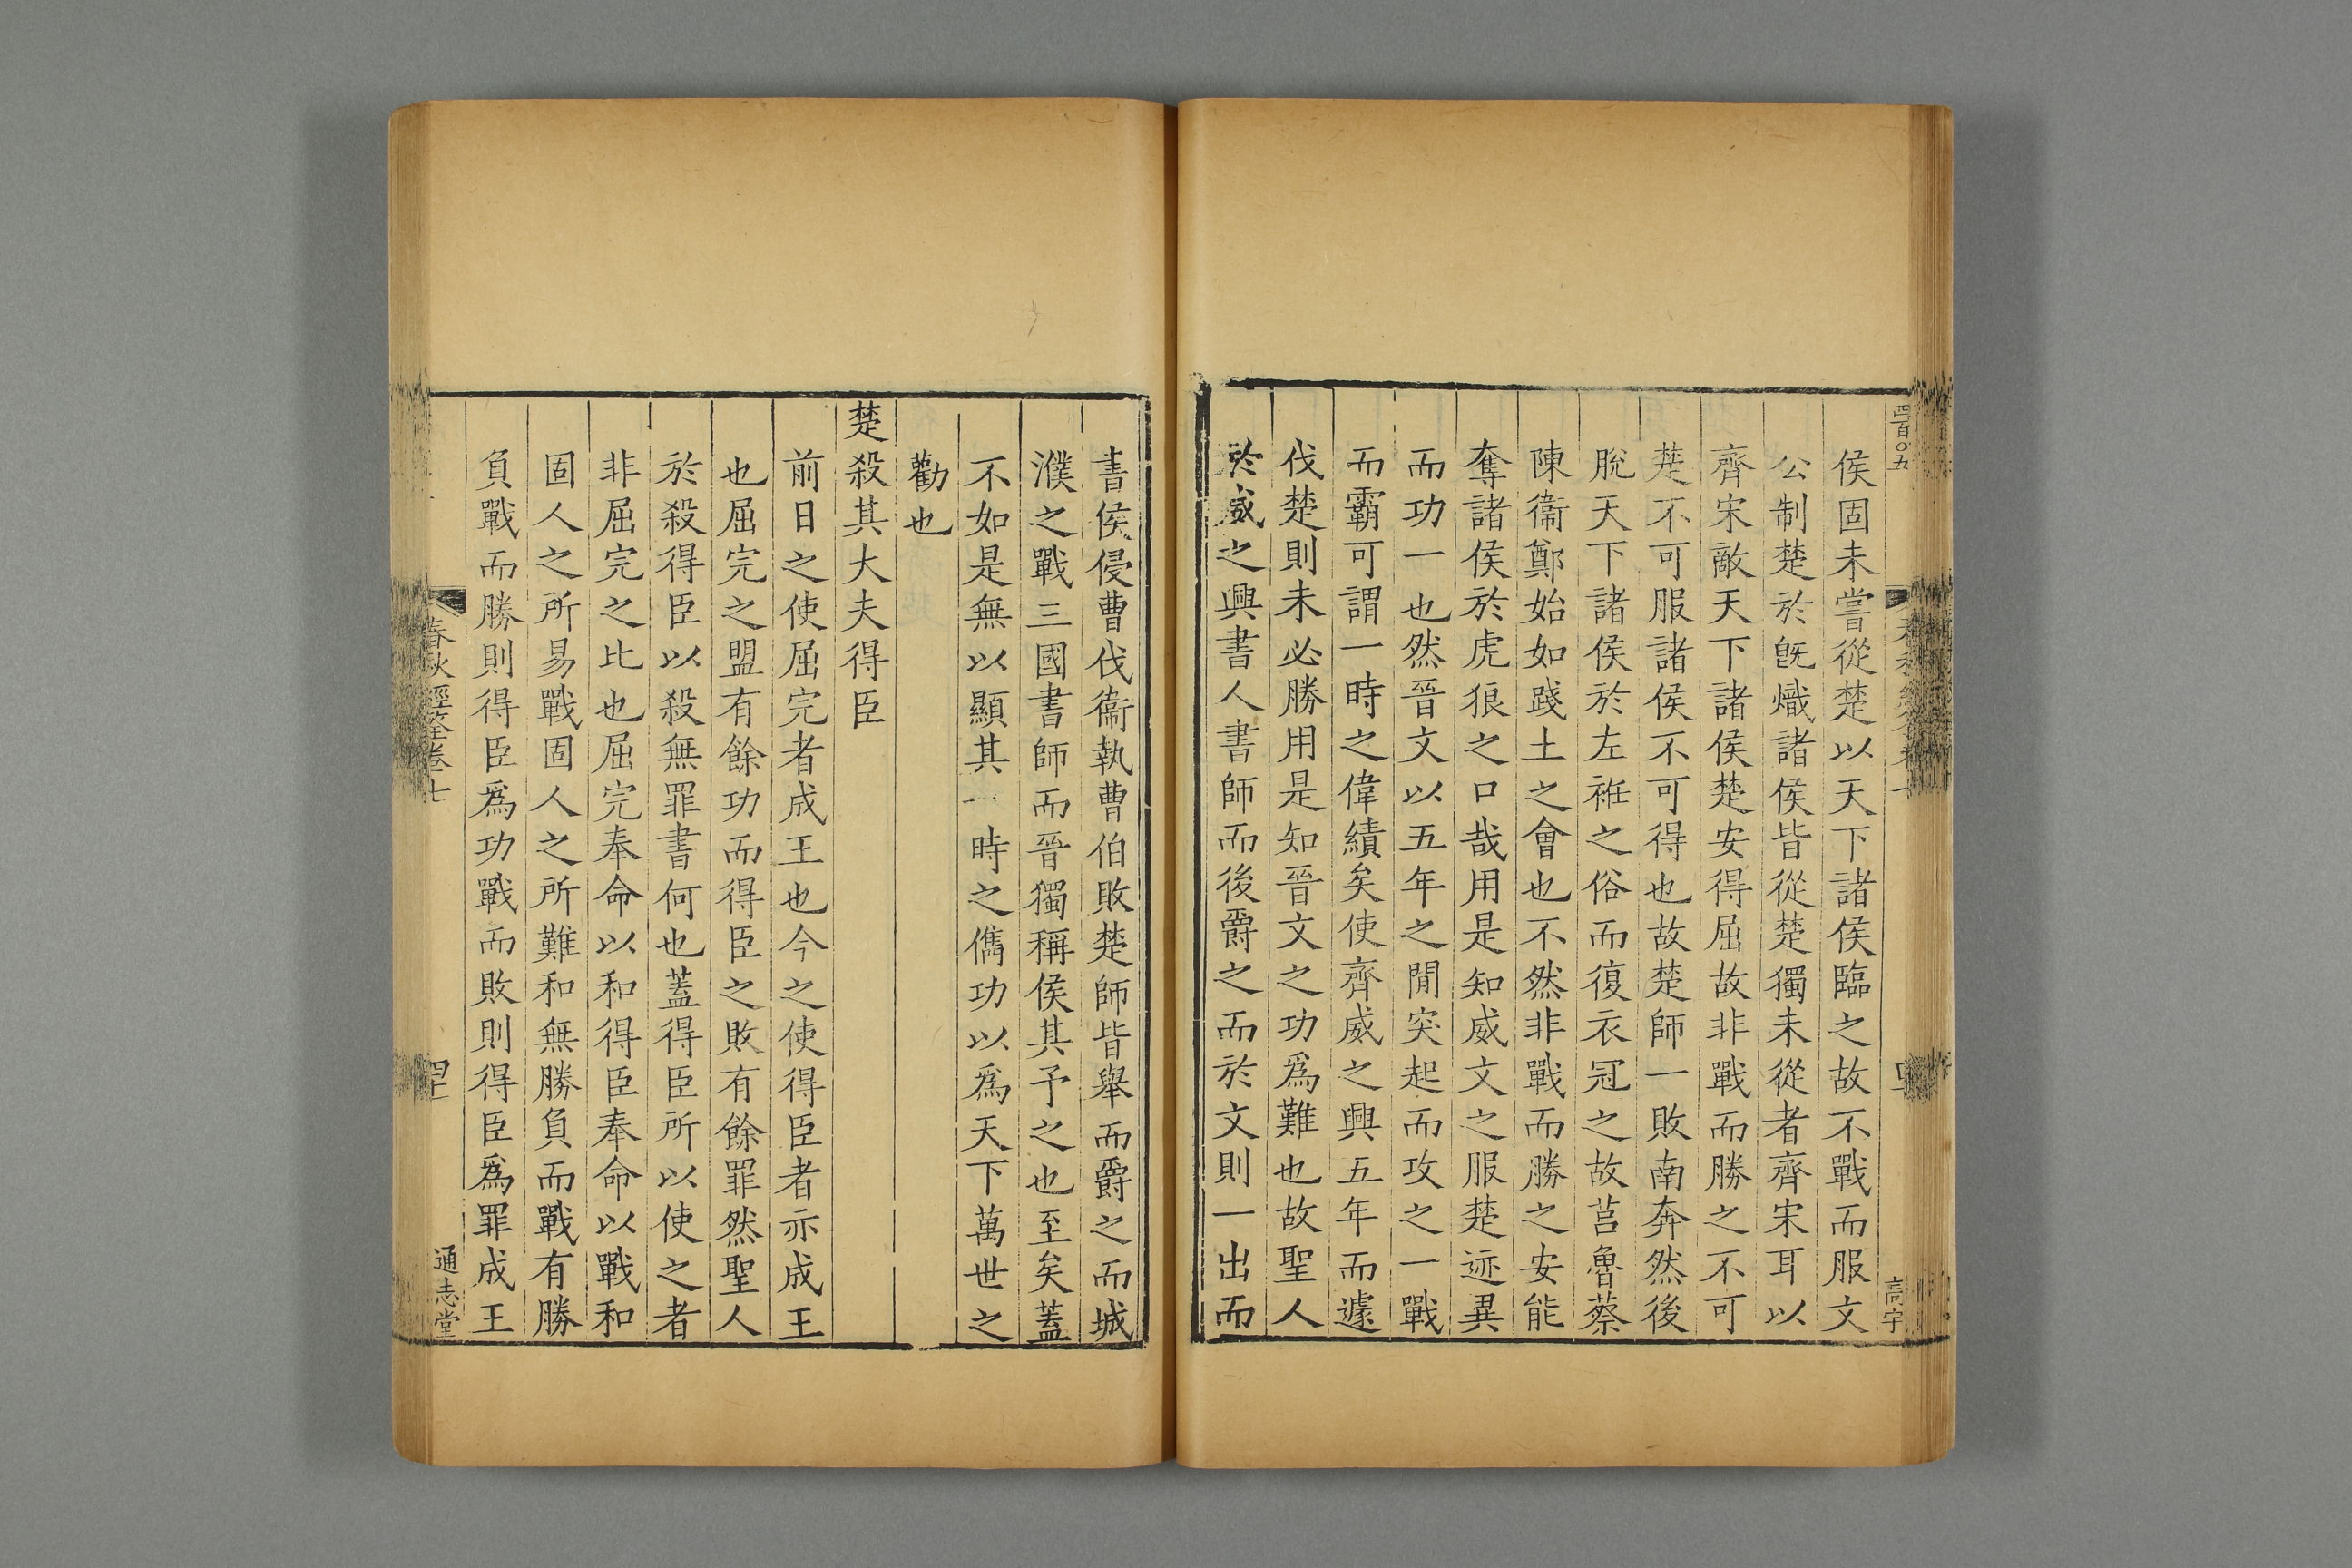 四百〇五
高宇
侯固未嘗從楚以天下諸侯臨之故不戰而服文
公制楚於旣熾諸侯皆從楚獨未從者齊宋耳以
齊宋敵天下諸侯楚安得屈故非戰而勝之不可
楚不可服諸侯不可得也故楚師一敗南奔然後
脫天下諸侯於左袵之俗而復衣冠之故莒魯蔡
陳衞鄭始如踐土之會也不然非戰而勝之安能
奪諸侯於虎狼之口哉用是知威文之服楚迹異
而功一也然晉文以五年之閒突起而攻之一戰
而霸可謂一時之偉績矣使齊威之興五年而遽
伐楚則未必勝用是知晉文之功爲難也故聖人
於威之興書人書師而後爵之而於文則一出而
書侯侵曹伐衞執曹伯敗楚師皆舉而爵之而城
濮之戰三國書師而晉獨稱侯其予之也至矣蓋
不如是無以顯其一時之儁功以爲天下萬世之
勸也
楚殺其大夫得臣
前日之使屈完者成王也今之使得臣者亦成王
也屈完之盟有餘功而得臣之敗有餘罪然聖人
於殺得臣以殺無罪書何也蓋得臣所以使之者
非屈完之比也屈完奉命以和得臣奉命以戰和
固人之所易戰固人之所難和無勝負而戰有勝
負戰而勝則得臣爲功戰而敗則得臣爲罪成王
春秋經筌卷七
通志堂